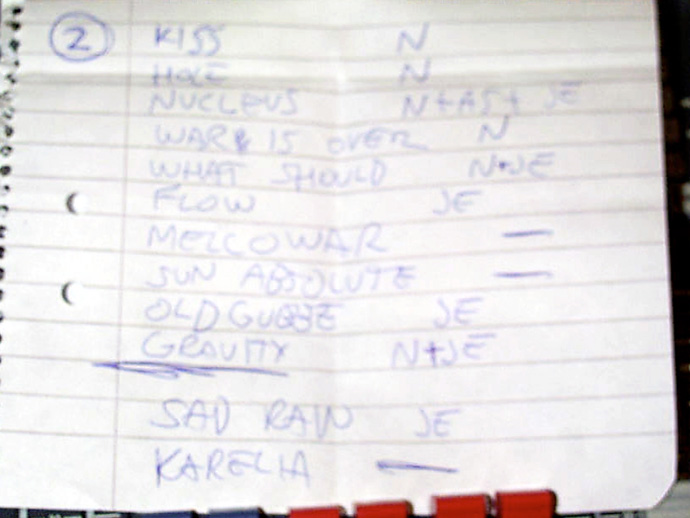 2 KISS N
HOLE N
NUCLEUS N+AS+ JE
WAR IS OVER N
WHAT SHOULD N+JE
FLOW JE
MELLOWAR —
SUN ABSOLUTE —
OLD JE
GRAVITY N+JE
SAD RAIN JE
KARELIA —